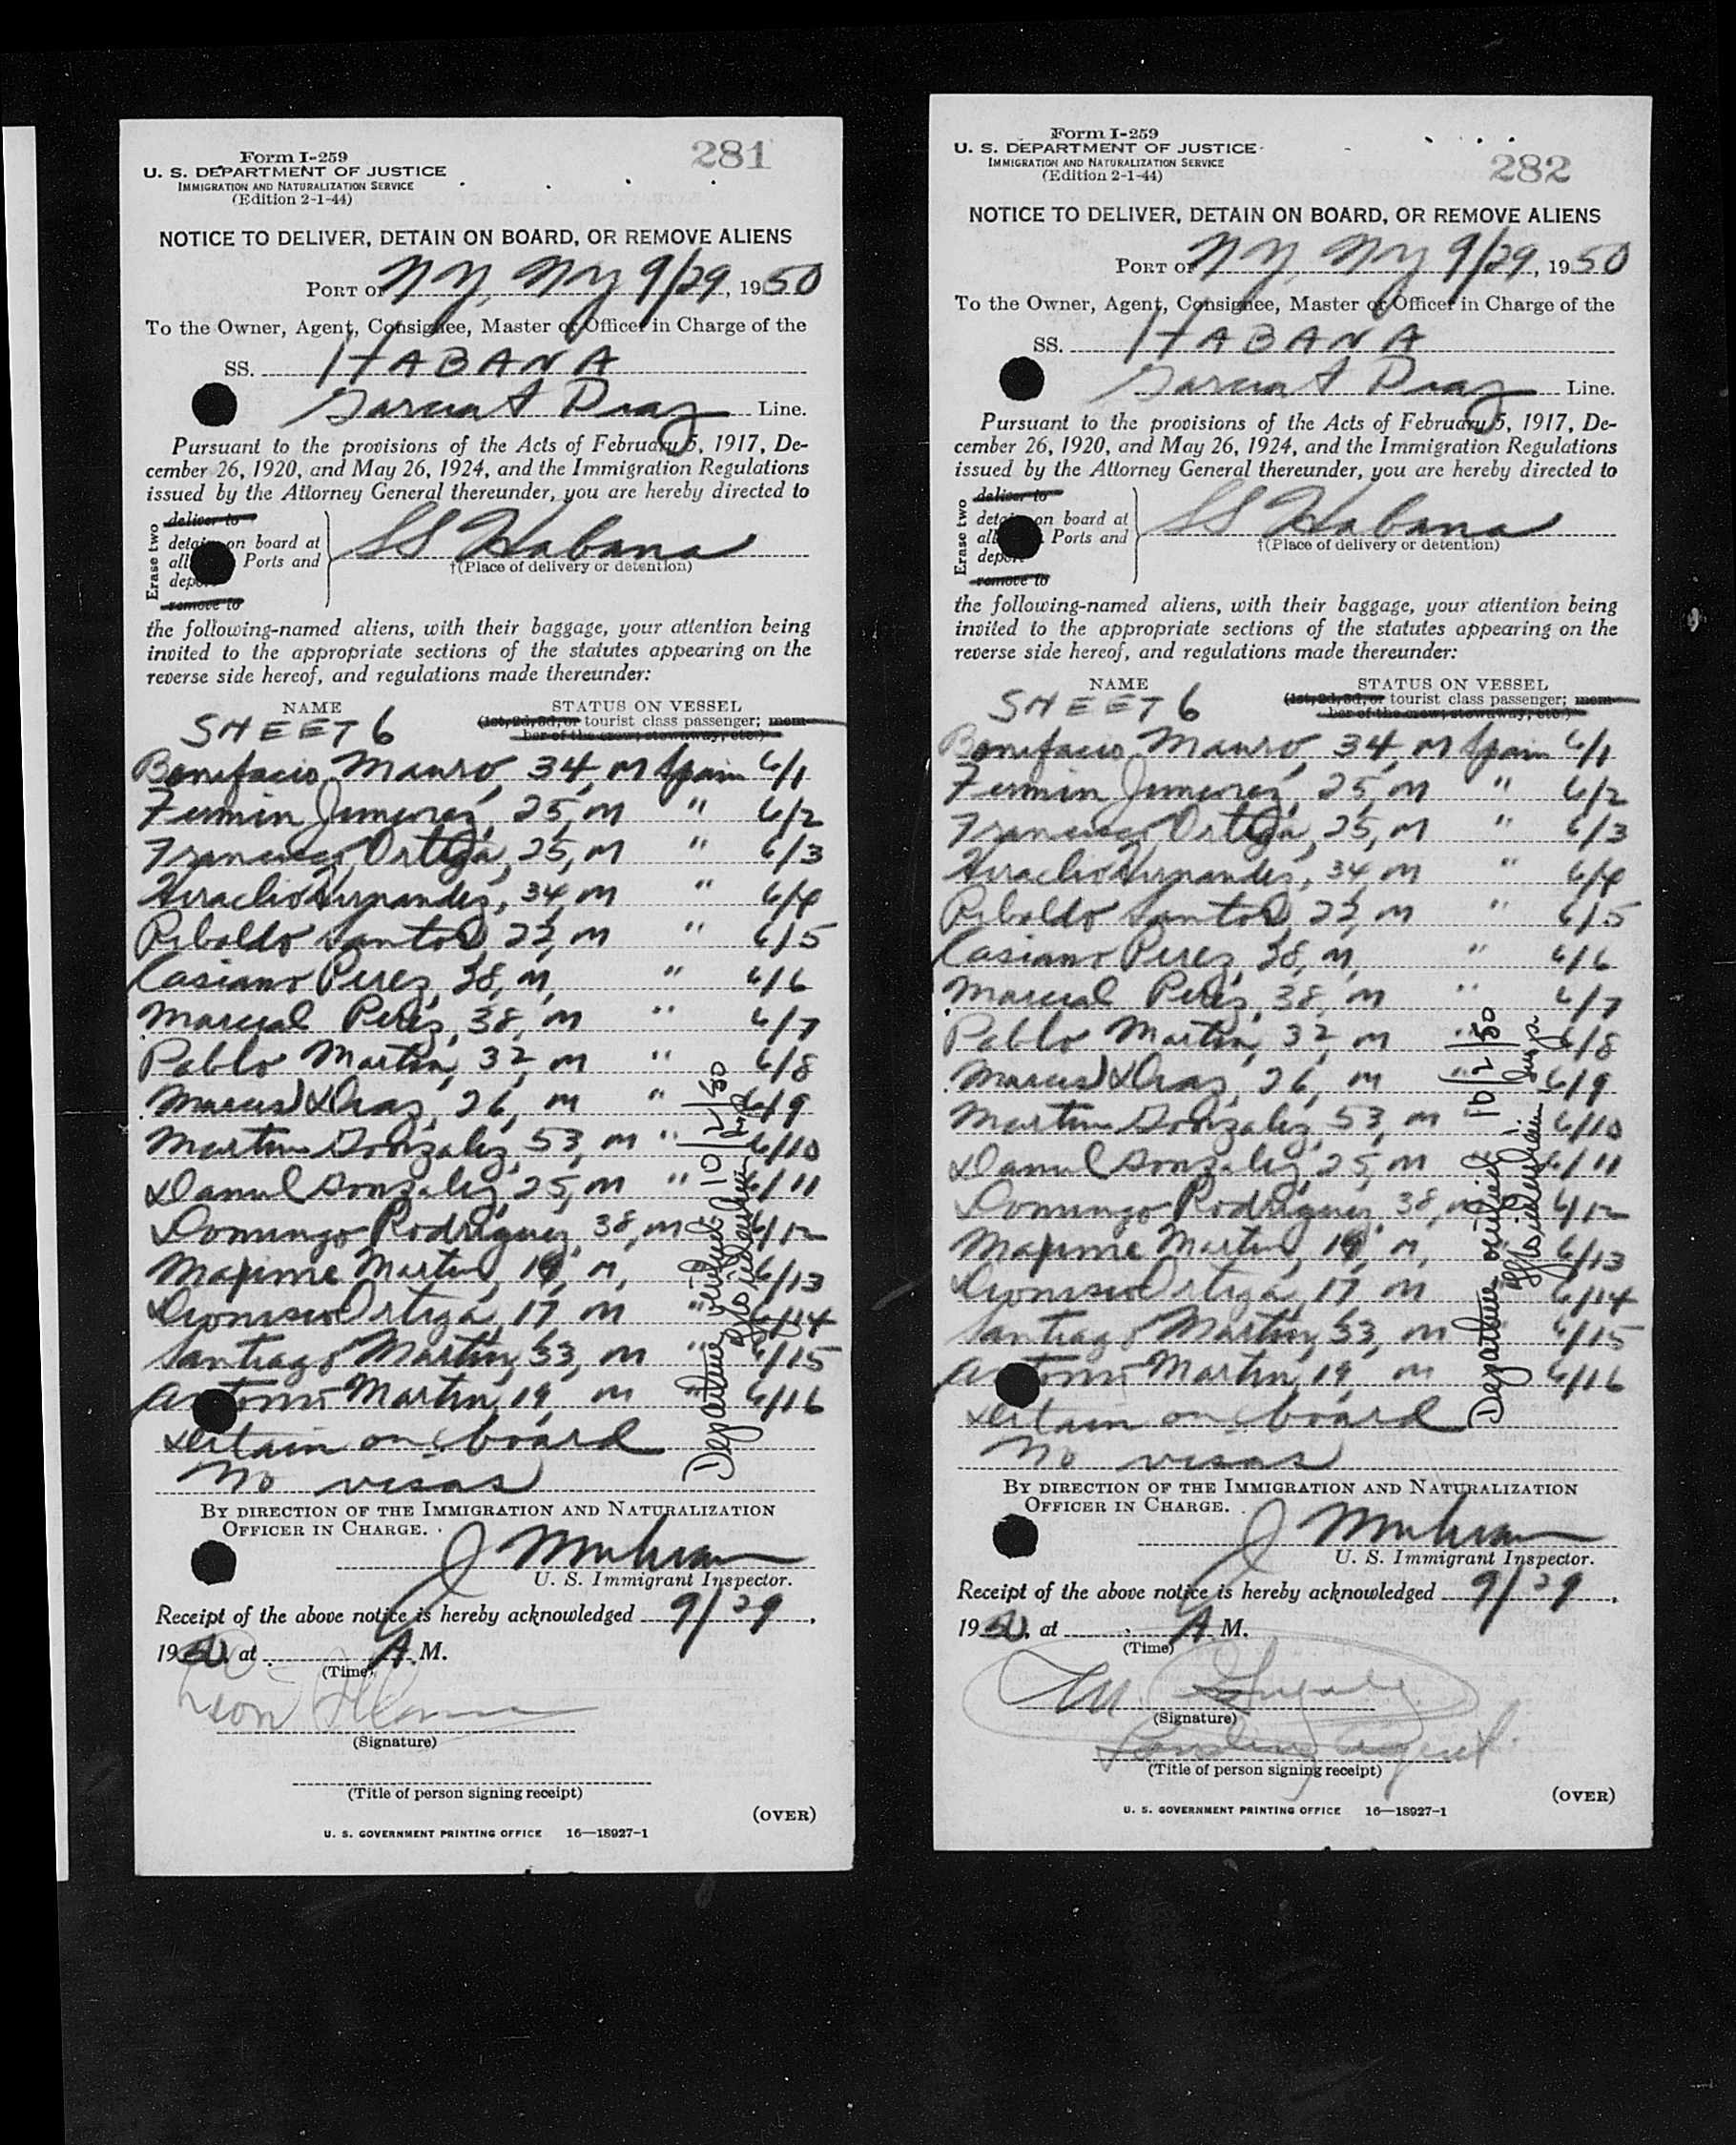 Form I-259
281
U. S. DEPARTMENT OF JUSTICE
IMMIGRATION AND NATURALIZATION SERVICE
(Edition 2-1-44)
NOTICE TO DELIVER, DETAIN ON BOARD, OR REMOVE ALIENS
PORT OF NY, NY 9/29, 1950
To the Owner, Agent, Consignee, Master or Officer in Charge of the
SS. HABANA
Garcia & Diaz Line.
Pursuant to the provisions of the Acts of February 5, 1917, De-
cember 26, 1920, and May 26, 1924, and the Immigration Regulations
issued by the Attorney General thereunder, you are hereby directed to
Erase two
deliver to
detain on board at
all Ports and
deport
remove to
SS Habana
†(Place of delivery or detention)
the following-named aliens, with their baggage, your attention being
invited to the appropriate sections of the statutes appearing on the
reverse side hereof, and regulations made thereunder:
NAME
STATUS ON VESSEL
(1st, 2d, 3d, or tourist class passenger; mem-
ber of the crew; stowaway, etc.)
SHEET 6
Bonifacio Mauro, 34, M Spain 6/1
Fermin Jimenez, 25, M " 6/2
Francisco Ortega, 25, M " 6/3
Hernandez, 34, M " 6/4
Santos 22, M " 6/5
Casiano Perez, 38, M, " 6/6
Marcial Perez, 38, M " 6/7
Pablo Martin, 32, M " 6/8
Diaz, 26, M " 6/9
Martin Gonzalez, 53, M " 6/10
Daniel Gonzalez, 25, M " 6/11
Domingo Rodriguez, 38, M 6/12
Martin, 19, M, 6/13
Dionisio Ortega, 17 M " 6/14
Santiago Martin, 33, M " 6/15
Antonio Martin, 19, M " 6/16
Detain on board
No visas
Departure verified 10/2/50
BY DIRECTION OF THE IMMIGRATION AND NATURALIZATION
OFFICER IN CHARGE.
J
U. S. Immigrant Inspector.
Receipt of the above notice is hereby acknowledged 9/29,
1950, at A. M.
(Time)
(Signature)
(Title of person signing receipt)
(OVER)
U. S. GOVERNMENT PRINTING OFFICE 16—18927-1
Form I-259
282
U. S. DEPARTMENT OF JUSTICE
IMMIGRATION AND NATURALIZATION SERVICE
(Edition 2-1-44)
NOTICE TO DELIVER, DETAIN ON BOARD, OR REMOVE ALIENS
PORT OF NY, NY 9/29, 1950
To the Owner, Agent, Consignee, Master or Officer in Charge of the
SS. HABANA
Garcia & Diaz Line.
Pursuant to the provisions of the Acts of February 5, 1917, De-
cember 26, 1920, and May 26, 1924, and the Immigration Regulations
issued by the Attorney General thereunder, you are hereby directed to
Erase two
deliver to
detain on board at
all Ports and
deport
remove to
SS Habana
†(Place of delivery or detention)
the following-named aliens, with their baggage, your attention being
invited to the appropriate sections of the statutes appearing on the
reverse side hereof, and regulations made thereunder:
NAME
STATUS ON VESSEL
(1st, 2d, 3d, or tourist class passenger; mem-
ber of the crew; stowaway, etc.)
SHEET 6
Bonifacio Mauro, 34, M Spain 6/1
Fermin Jimenez, 25, M " 6/2
Francisco Ortega, 25, M " 6/3
Hernandez, 34, M " 6/4
Santos 22, M " 6/5
Casiano Perez, 38, M, " 6/6
Marcial Perez, 38, M " 6/7
Pablo Martin, 32, M " 6/8
Diaz, 26, M " 6/9
Martin Gonzalez, 53, M 6/10
Daniel Gonzalez, 25, M 6/11
Domingo Rodriguez, 38, M 6/12
Martin, 19, M, 6/13
Dionisio Ortega, 17 M 6/14
Santiago Martin, 33, M " 6/15
Antonio Martin, 19, M 6/16
Detain on board
No visas
Departure verified 10/2/50
BY DIRECTION OF THE IMMIGRATION AND NATURALIZATION
OFFICER IN CHARGE.
J
U. S. Immigrant Inspector.
Receipt of the above notice is hereby acknowledged 9/29,
1950, at A. M.
(Time)
(Signature)
Landing Agent.
(Title of person signing receipt)
(OVER)
U. S. GOVERNMENT PRINTING OFFICE 16—18927-1